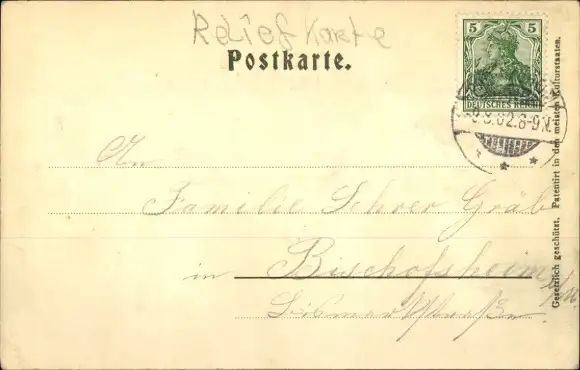 Relief Karte
Postkarte.
5 5
DEUTSCHES REICH
.8.02.8-9V.
An
Familie Lehrer Gräb
in Bischofsheim
Bismarkstraße
Gesetzlich geschützt. Patentirt in den meisten Kulturstaaten.